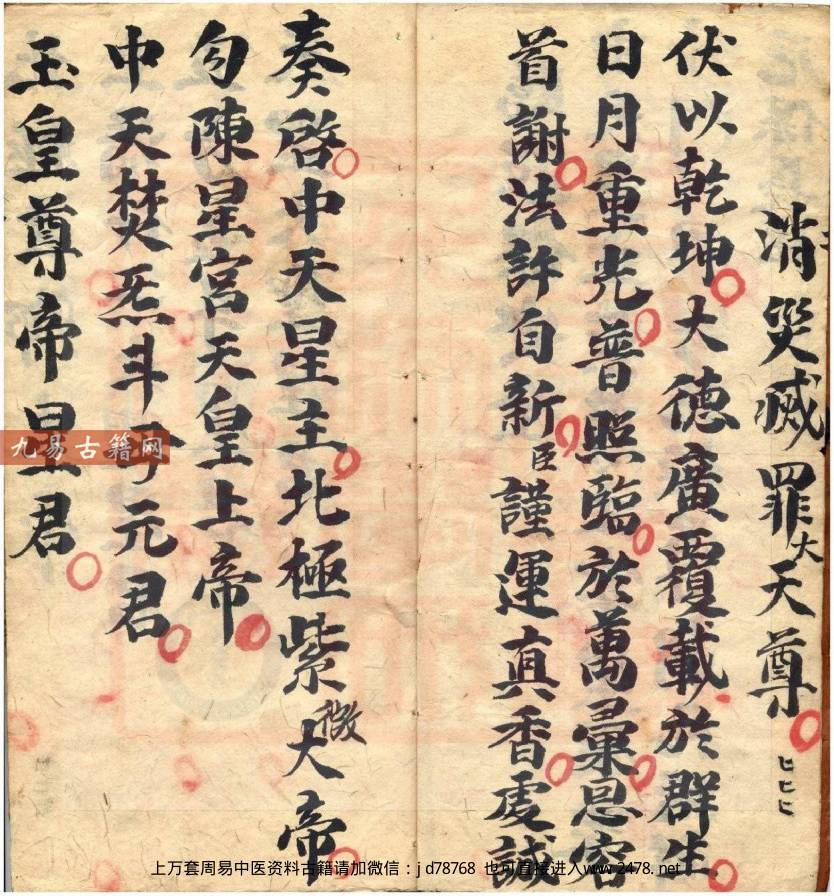 消災滅罪大天尊
伏以乾坤大德廣覆載於群生
日月重光普照臨於萬彙恩容
首謝法許自新臣謹運真香虔誠
奏啓中天星主北極紫微大帝
勾陳星宮天皇上帝
中天焚炁斗母元君
玉皇尊帝星君
九易古籍网
上万套周易中医资料古籍请加微信：jd78768 也可直接进入www.2478.net